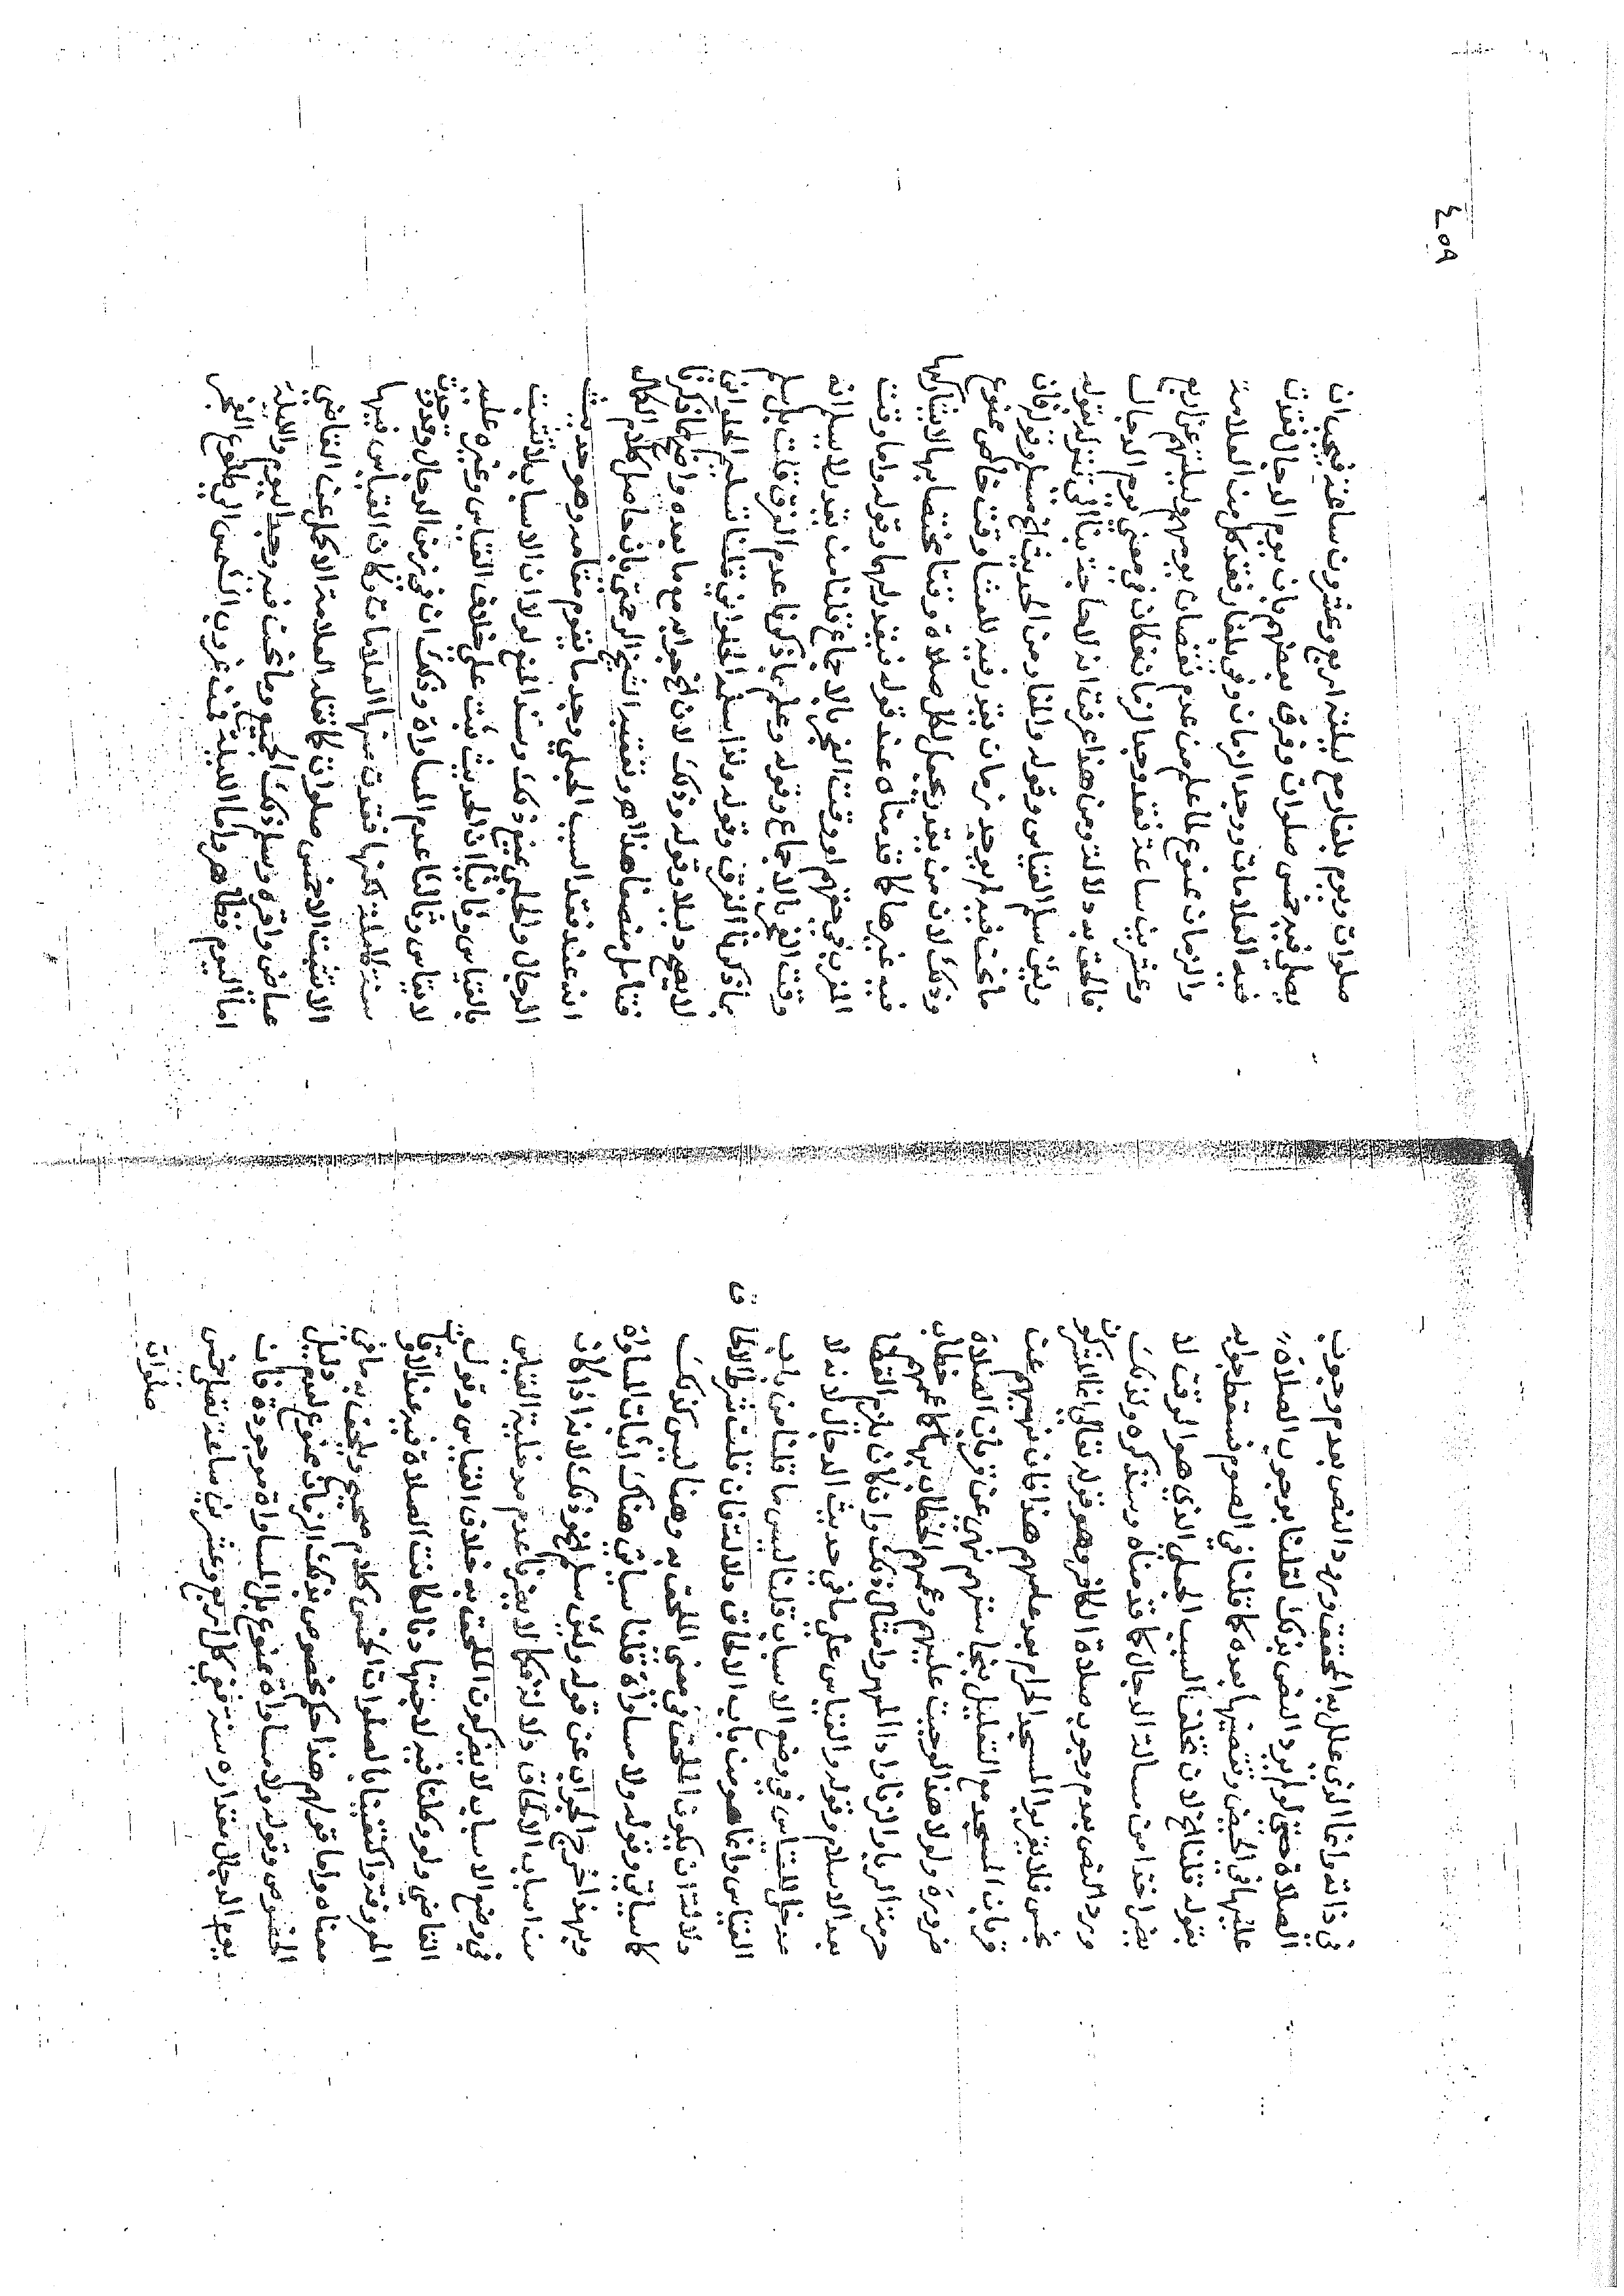 في ذاته وانما الذي علل به المحقق ورود النص بعدم وجوب
الصلاة حتى لو لم يرد النص بذلك لقلنا بوجوب الصلاة
عليها في الحيض وتقضيها بعده كما قلنا في الصوم فسقط جوابه
بقوله قلنا الخ لان تخلف السبب الجعلي الذي هو الوقت لا
يضر اخذا من مسالة الدجال كما قدمناه وستذكره ولذلك
ورد النص بعدم وجوب صلاة الكافر وهو قوله تعالى انما المشركون
نجس فلا يقربوا المسجد الحرام بعد عامهم هذا فان نهيهم عن
قربان المسجد مع التعليل بنجاستهم نهي عن قربان الصلاة
ضرورة ولولا هذا لوجبت عليهم وعمهم الخطاب بها كما عمهم خطاب
حرمة الربا والزنا واداء المهر وامثال ذلك وان كان يلزم القضا
بعد الاسلام وقوله والقياس على ما في حديث الدجال لانه لا
مدخل للقياس في وضع الاسباب قلنا ليس ما قلنا من باب
القياس وانما هو من باب الالحاق دلالة فان قلت شرط الالحاق
دلالة ان يكون الملحق في معنى الملحق به وهنا ليس كذلك
كما سياتي وقوله ولا مساواة قلنا سياتي هناك اثبات المساواة
وبهذا خرج الجواب عن قوله ولئن سلم الخ وذلك لانه اذا كان
من باب الالحاق دلالة فكما لا يضرنا عدم مدخلية القياس
في وضع الاسباب لا يضر كون الملحق به خلاف القياس وقول
القاضي ولو وكلنا فيه لاجتهادنا لكانت الصلاة فيه عند الاوقات
المعروفة واكتفينا بالصلوات الخمس كلام صحيح ويلحق به ما في
معناه واما قولهم هذا حكم مخصوص بذلك الزمان ممنوع لعدم دليل
الخصوص وقوله ولا مساواة ممنوع بل المساواة موجودة فان
يوم الدجال مقداره سنة ففي كل اربع وعشرين ساعة تقام خمس
صلوات
٤٥٩
صلوات ويوم بلغار مع ليلته اربع وعشرون ساعة فيجب ان
يصلى فيه خمس صلوات وفرق بعضهم بان يوم الدجال فقدت
فيه العلامات ووجد الزمان وفي بلغار فقد كل من العلامة
والزمان ممنوع لما علم من عدم نقصان يومهم وليلتهم عن اربع
وعشرين ساعة فقد وجد الزمان فكان في معنى يوم الدجال
فالحق به دلالة ومن هذا عرفت انه لا حاجة بنا الى قوله بقوله
ولئن سلم القياس وقوله والمفاد من الحديث الخ مسلم وقوله فان
ما نحن فيه لم يوجد زمان يقدر فيه للعشا وقت خاص ممنوع
وذلك لان من يقدر يجعل لكل صلاة وقتا يختصا بها لا يشاركها
فيه غيرها كما قدمناه عند قوله فيقدر لهما وقوله واما وقت
المغرب في حقهم لو وقت الفجر بالاجماع قلنا من يقدر لا يسلم انه
وقت الفجر بالاجماع وقوله وعلم بما ذكرنا عدم الفرق قلت بل يسلم
بما ذكرنا الفرق وقوله ولذا سلمه الحلواني قلنا تسليم الحلواني
لا يصلح دليلا وقوله وذلك لان الخ جوابه مع ما بعده واضح بما ذكرنا
فتامل منصفا هذا هو وتعقبه الشيخ الرحمتي بان حاصل كلام الكمال
انه عند فقد السبب الجعلي وجد ما يقوم مقامه وهو حديث
الدجال والحلبي يمنع ذلك وسند المنع اولا ان الاسباب لا تثبت
بالقياس وثانيا ان الحديث ثبت على خلاف القياس وغيره عليه
لا يقاس وثالثا عدم المساواة وذلك ان في زمن الدجال وجدت
سنة كاملة لكنها فقدت منها العلامات وكان القياس فيها
الا تثبت الا خمس صلوات كما نقله العلامة الاكمل عن القاضي
عياض واقره وسلم ذلك الجميع وما نحن فيه وجد اليوم والليلة
اما اليوم فظاهر واما الليلة فمن غروب الشمس الى طلوع الفجر